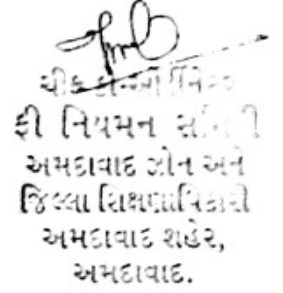 ચીફ કો-ઓર્ડિનેટર
ફી નિયમન સમિતી
અમદાવાદ ઝોન અને
જિલ્લા શિક્ષણાધિકારી
અમદાવાદ શહેર,
અમદાવાદ.